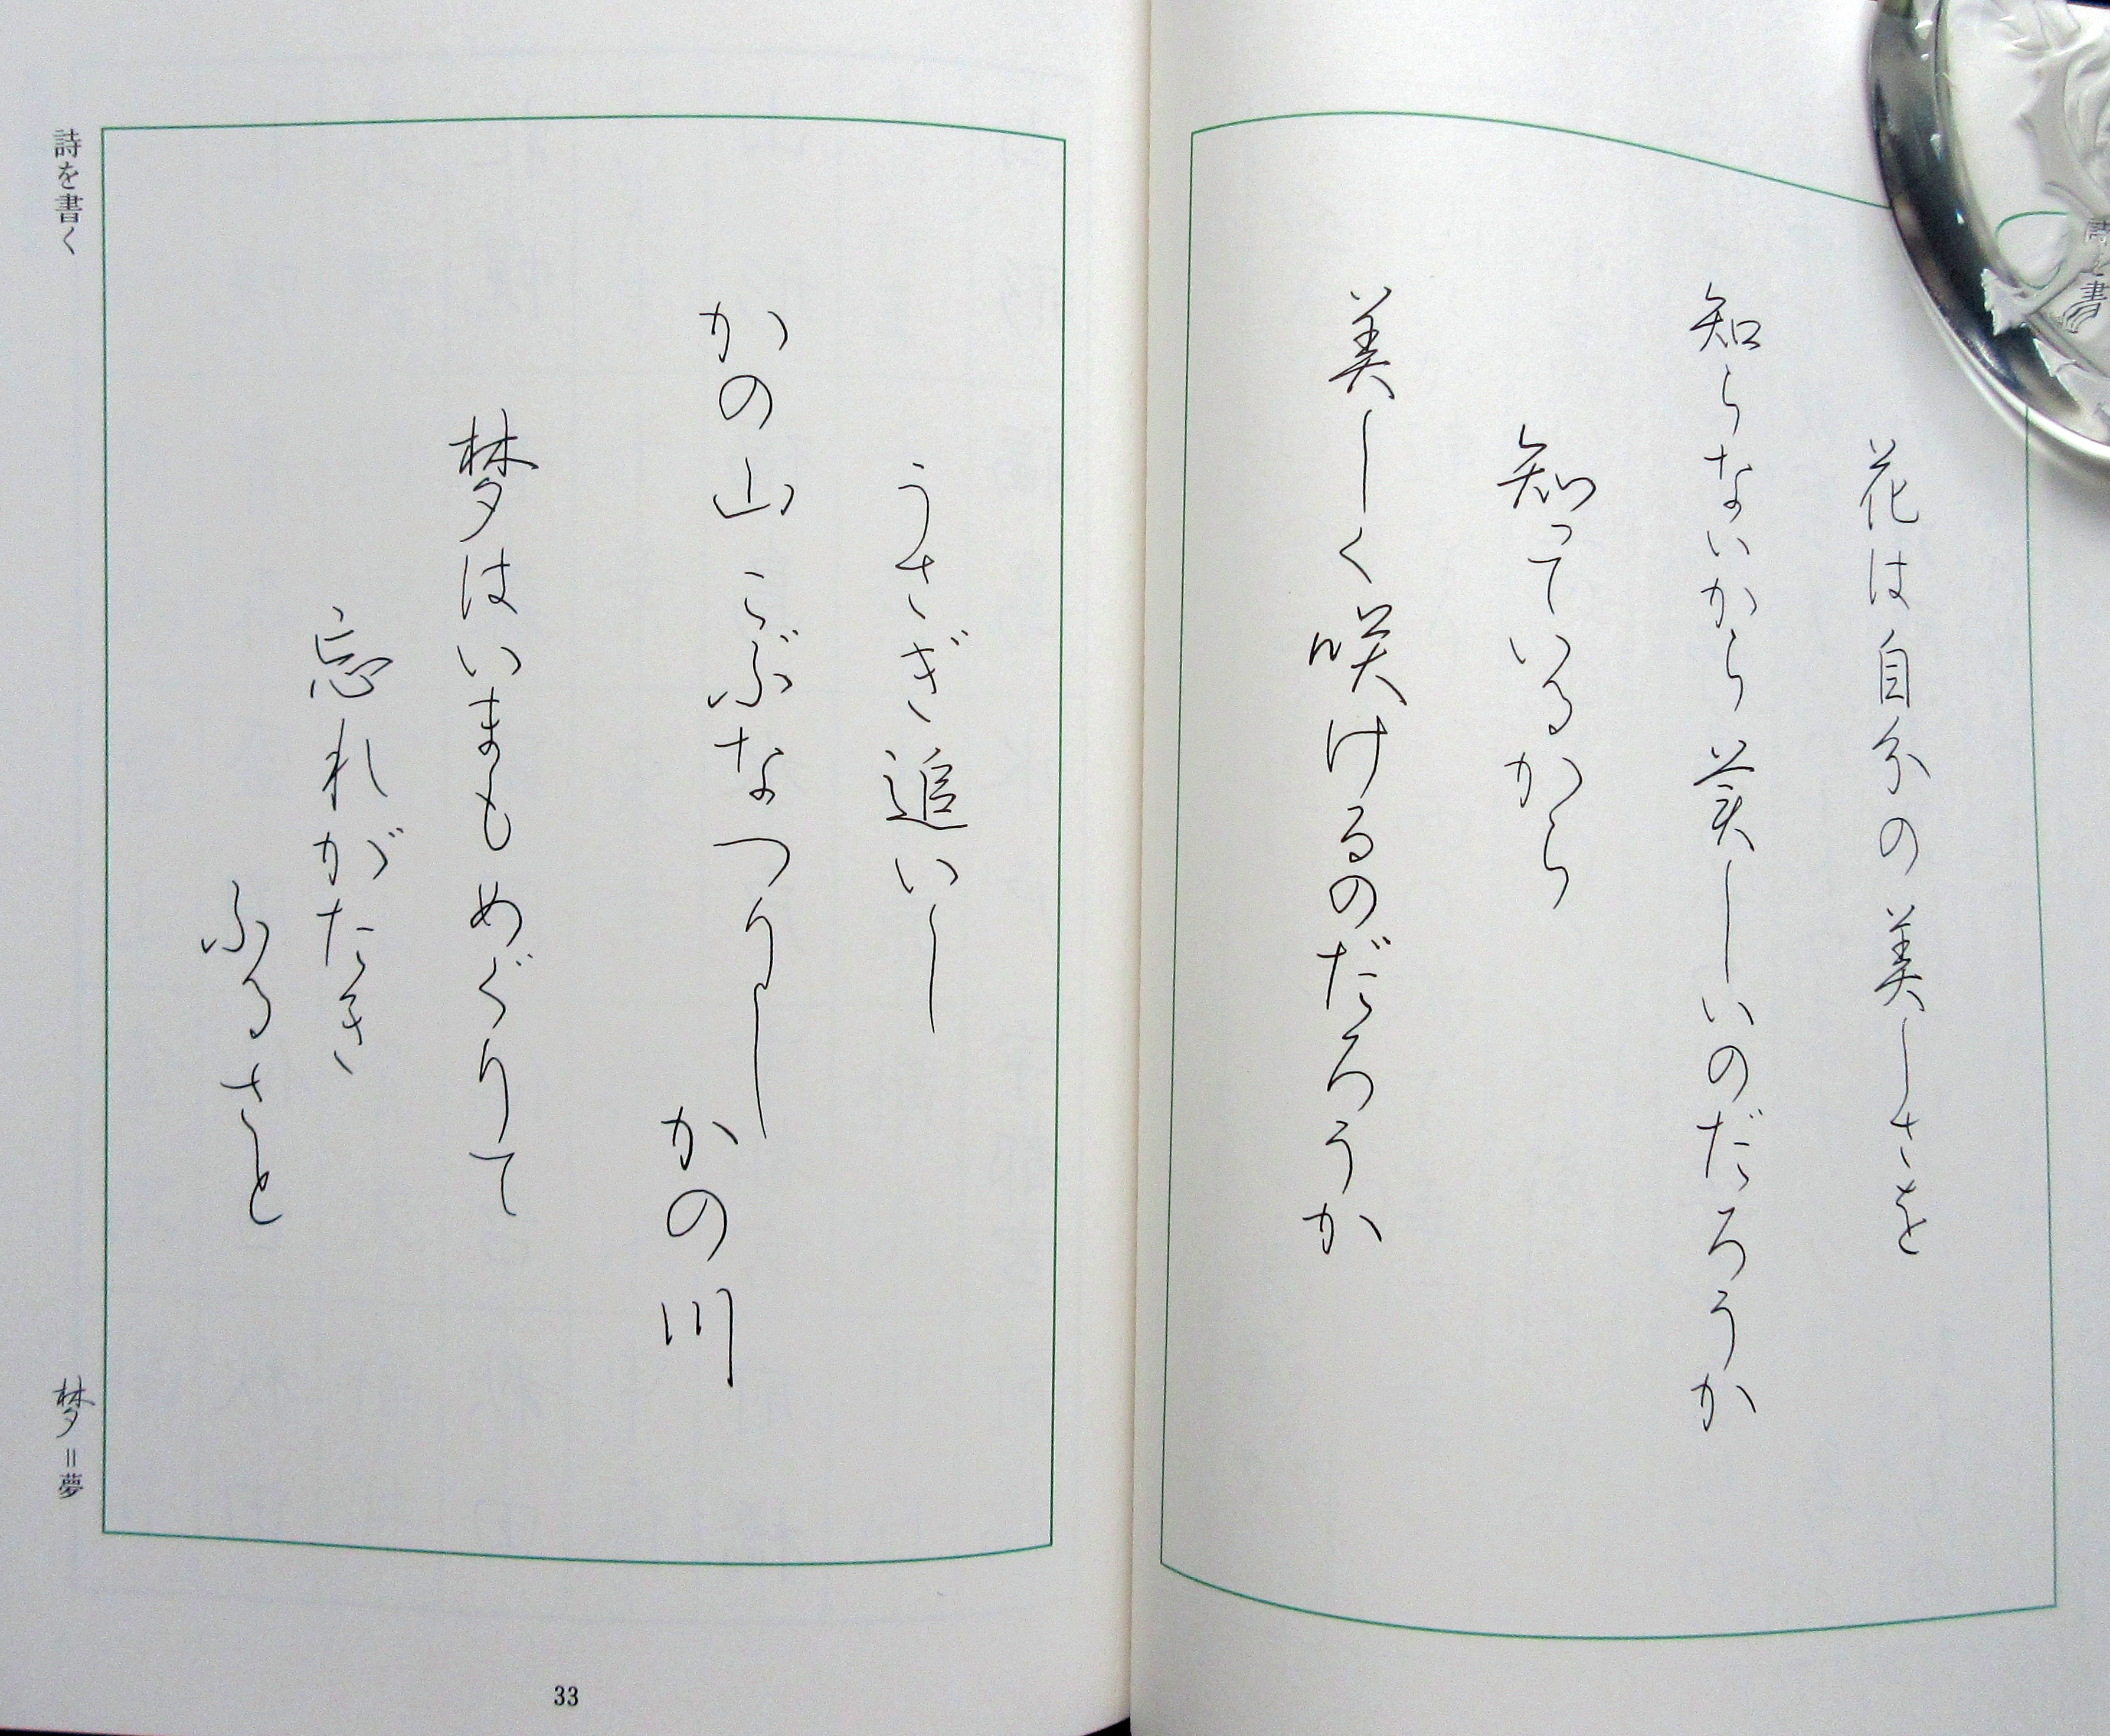 詩を書
花は自分の美しさを
知らないから美しいのだろうか
知っているから
美しく咲けるのだろうか
うさぎ追いし
かの山こぶなつりし
かの川
夢はいまもめぐりて
忘れがたき
ふるさと
詩を書く
梦=夢
33